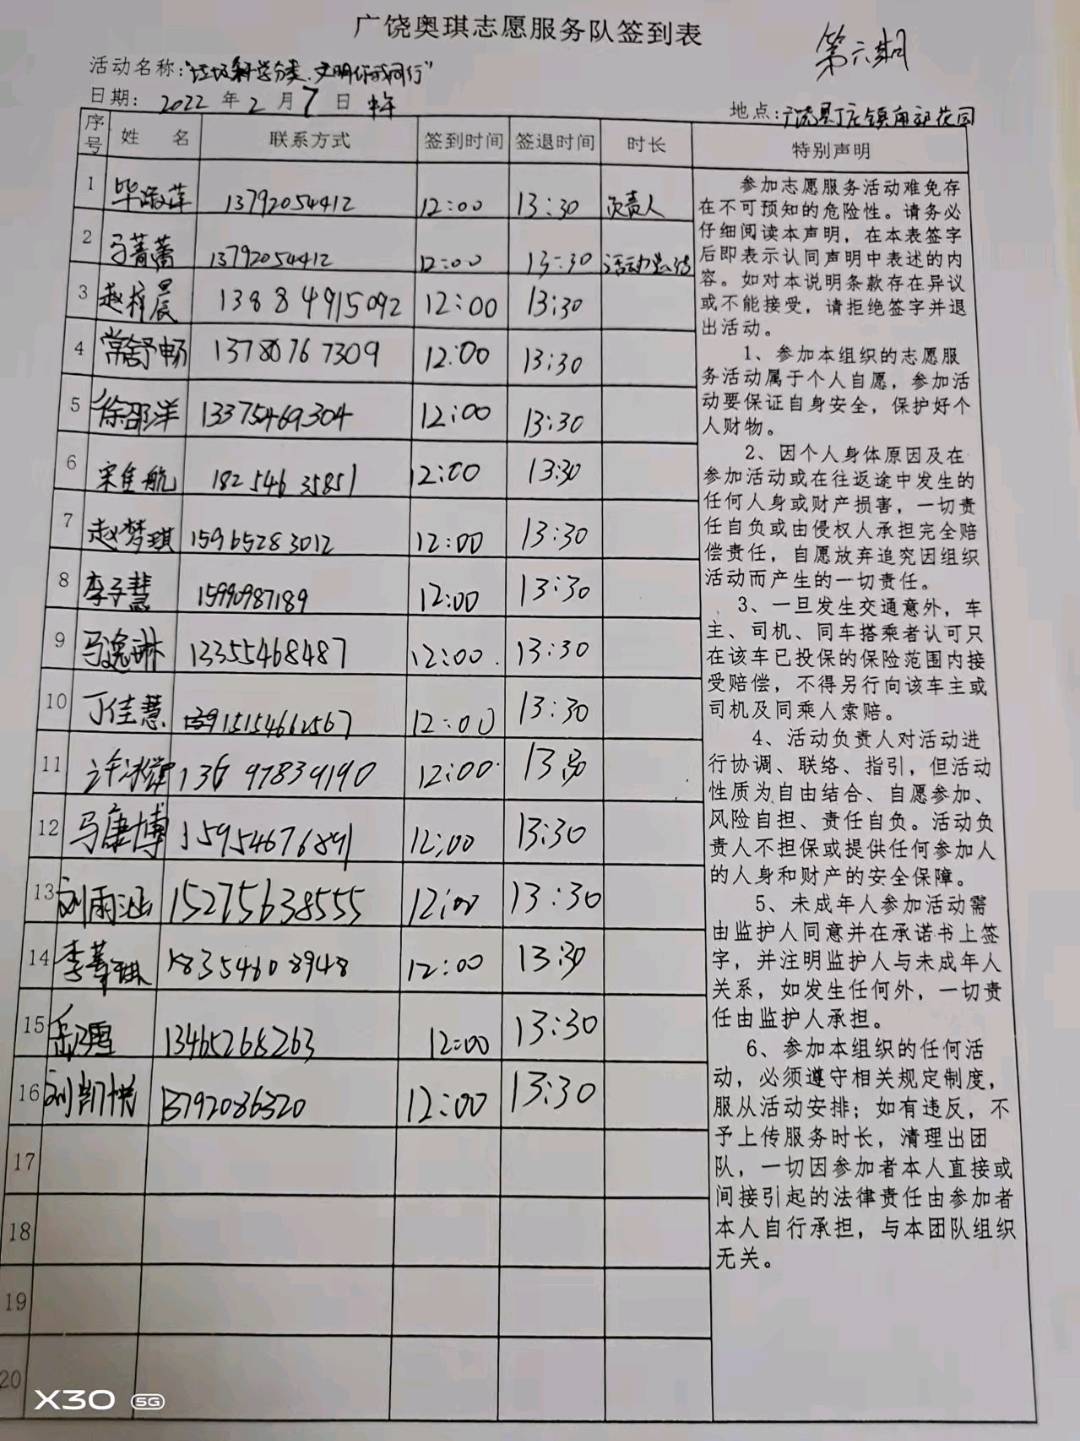 广饶奥琪志愿服务队签到表
第六期
活动名称:"垃圾科学分类、文明你我同行"
日期: 2022 年 2 月 7 日
地点:广饶县丁庄镇南郭花园
序号 姓 名 联系方式 签到时间 签退时间 时长 特别声明
1 13792054412 12:00 13:30 负责人
2 马菁蔷 13792054412 12:00 13:30
3 赵梓晨 13884915092 12:00 13:30
4 常舒畅 13780767309 12:00 13:30
5 徐邵洋 13375469304 12:00 13:30
6 宋佳航 18254635851 12:00 13:30
7 赵梦琪 15965283012 12:00 13:30
8 李子慧 15990987189 12:00 13:30
9 马逸琳 13355468487 12:00 13:30
10 丁佳慧 12:00 13:30
11 13697839190 12:00 13:30
12 马康博 15954676891 12:00 13:30
13 刘雨涵 15275638555 12:00 13:30
14 李菁琪 18354608948 12:00 13:30
15 13465268263 12:00 13:30
16 刘凯悦 13792086320 12:00 13:30
17
18
19
20
参加志愿服务活动难免存
在不可预知的危险性。请务必
仔细阅读本声明，在本表签字
后即表示认同声明中表述的内
容。如对本说明条款存在异议
或不能接受，请拒绝签字并退
出活动。
1、参加本组织的志愿服
务活动属于个人自愿，参加活
动要保证自身安全，保护好个
人财物。
2、因个人身体原因及在
参加活动或在往返途中发生的
任何人身或财产损害，一切责
任自负或由侵权人承担完全赔
偿责任，自愿放弃追究因组织
活动而产生的一切责任。
3、一旦发生交通意外，车
主、司机、同车搭乘者认可只
在该车已投保的保险范围内接
受赔偿，不得另行向该车主或
司机及同乘人索赔。
4、活动负责人对活动进
行协调、联络、指引，但活动
性质为自由结合、自愿参加、
风险自担、责任自负。活动负
责人不担保或提供任何参加人
的人身和财产的安全保障。
5、未成年人参加活动需
由监护人同意并在承诺书上签
字，并注明监护人与未成年人
关系，如发生任何外，一切责
任由监护人承担。
6、参加本组织的任何活
动，必须遵守相关规定制度，
服从活动安排；如有违反，不
予上传服务时长，清理出团
队，一切因参加者本人直接或
间接引起的法律责任由参加者
本人自行承担，与本团队组织
无关。
X30 5G